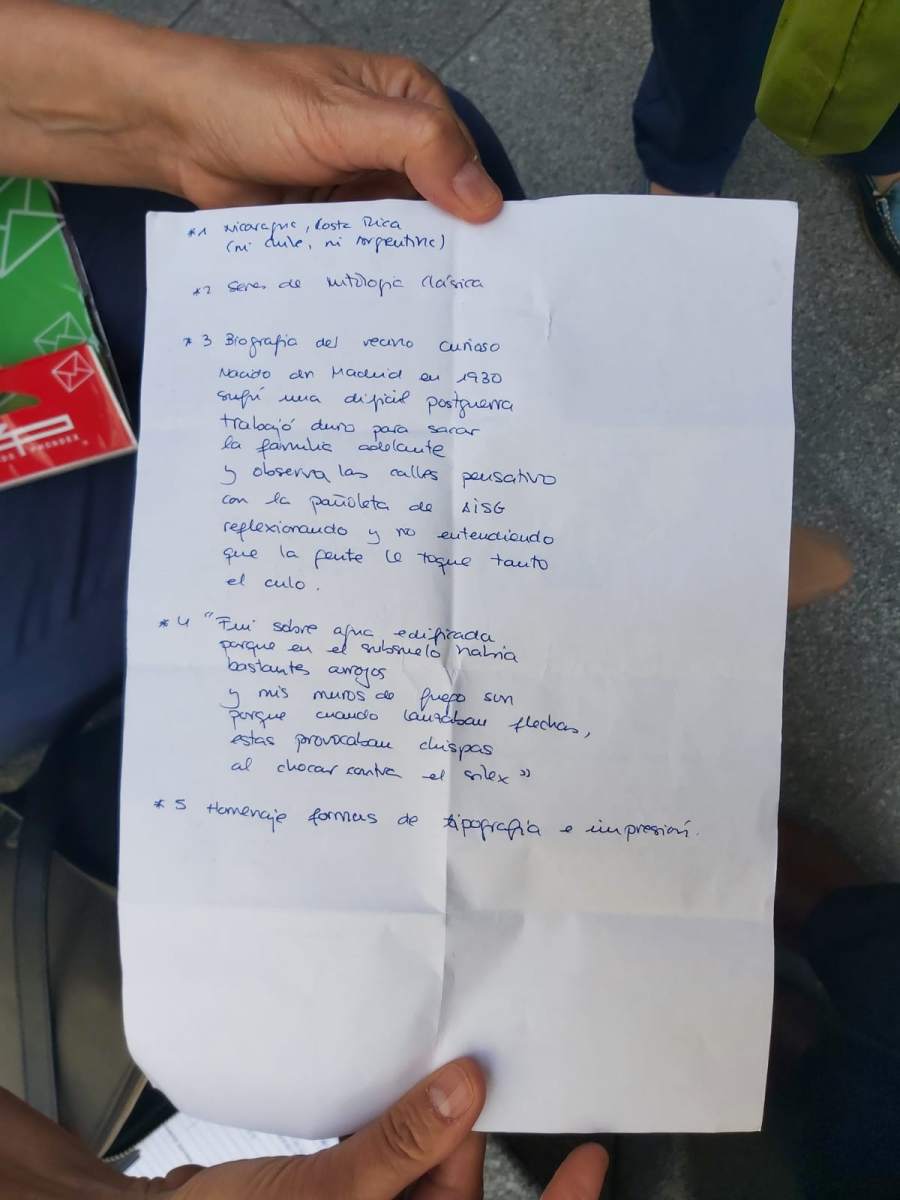 *1 Nicaragua, Costa Rica
(ni Chile, ni Argentina)
*2 Seres de Mitologia Clásica
* 3 Biografia del vecino curioso
Nacido en Madrid en 1930
sufrí una dificil postguerra
trabajó duro para sacar
la familia adelante
y observa las calles pensativo
con la pañoleta de AISG
reflexionando y no entendiendo
que la gente le toque tanto
el culo.
*4 "Fui sobre agua edificada
porque en el subsuelo habia
bastantes arroyos
y mis muros de fuego son
porque cuando lanzaban flechas,
estas provocaban chispas
al chocar contra el silex"
* 5 Homenaje formas de tipografía e impresión.